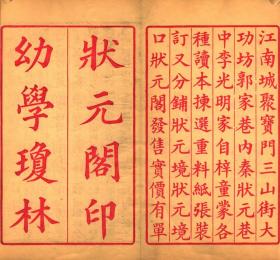 江南城聚寶門三山街大
功坊郭家巷內秦狀元巷
中李光明家自梓童蒙各
種讀本揀選重料紙張裝
訂又分鋪狀元境狀元境
口狀元閣發售實價有單
狀元閣印
幼學瓊林